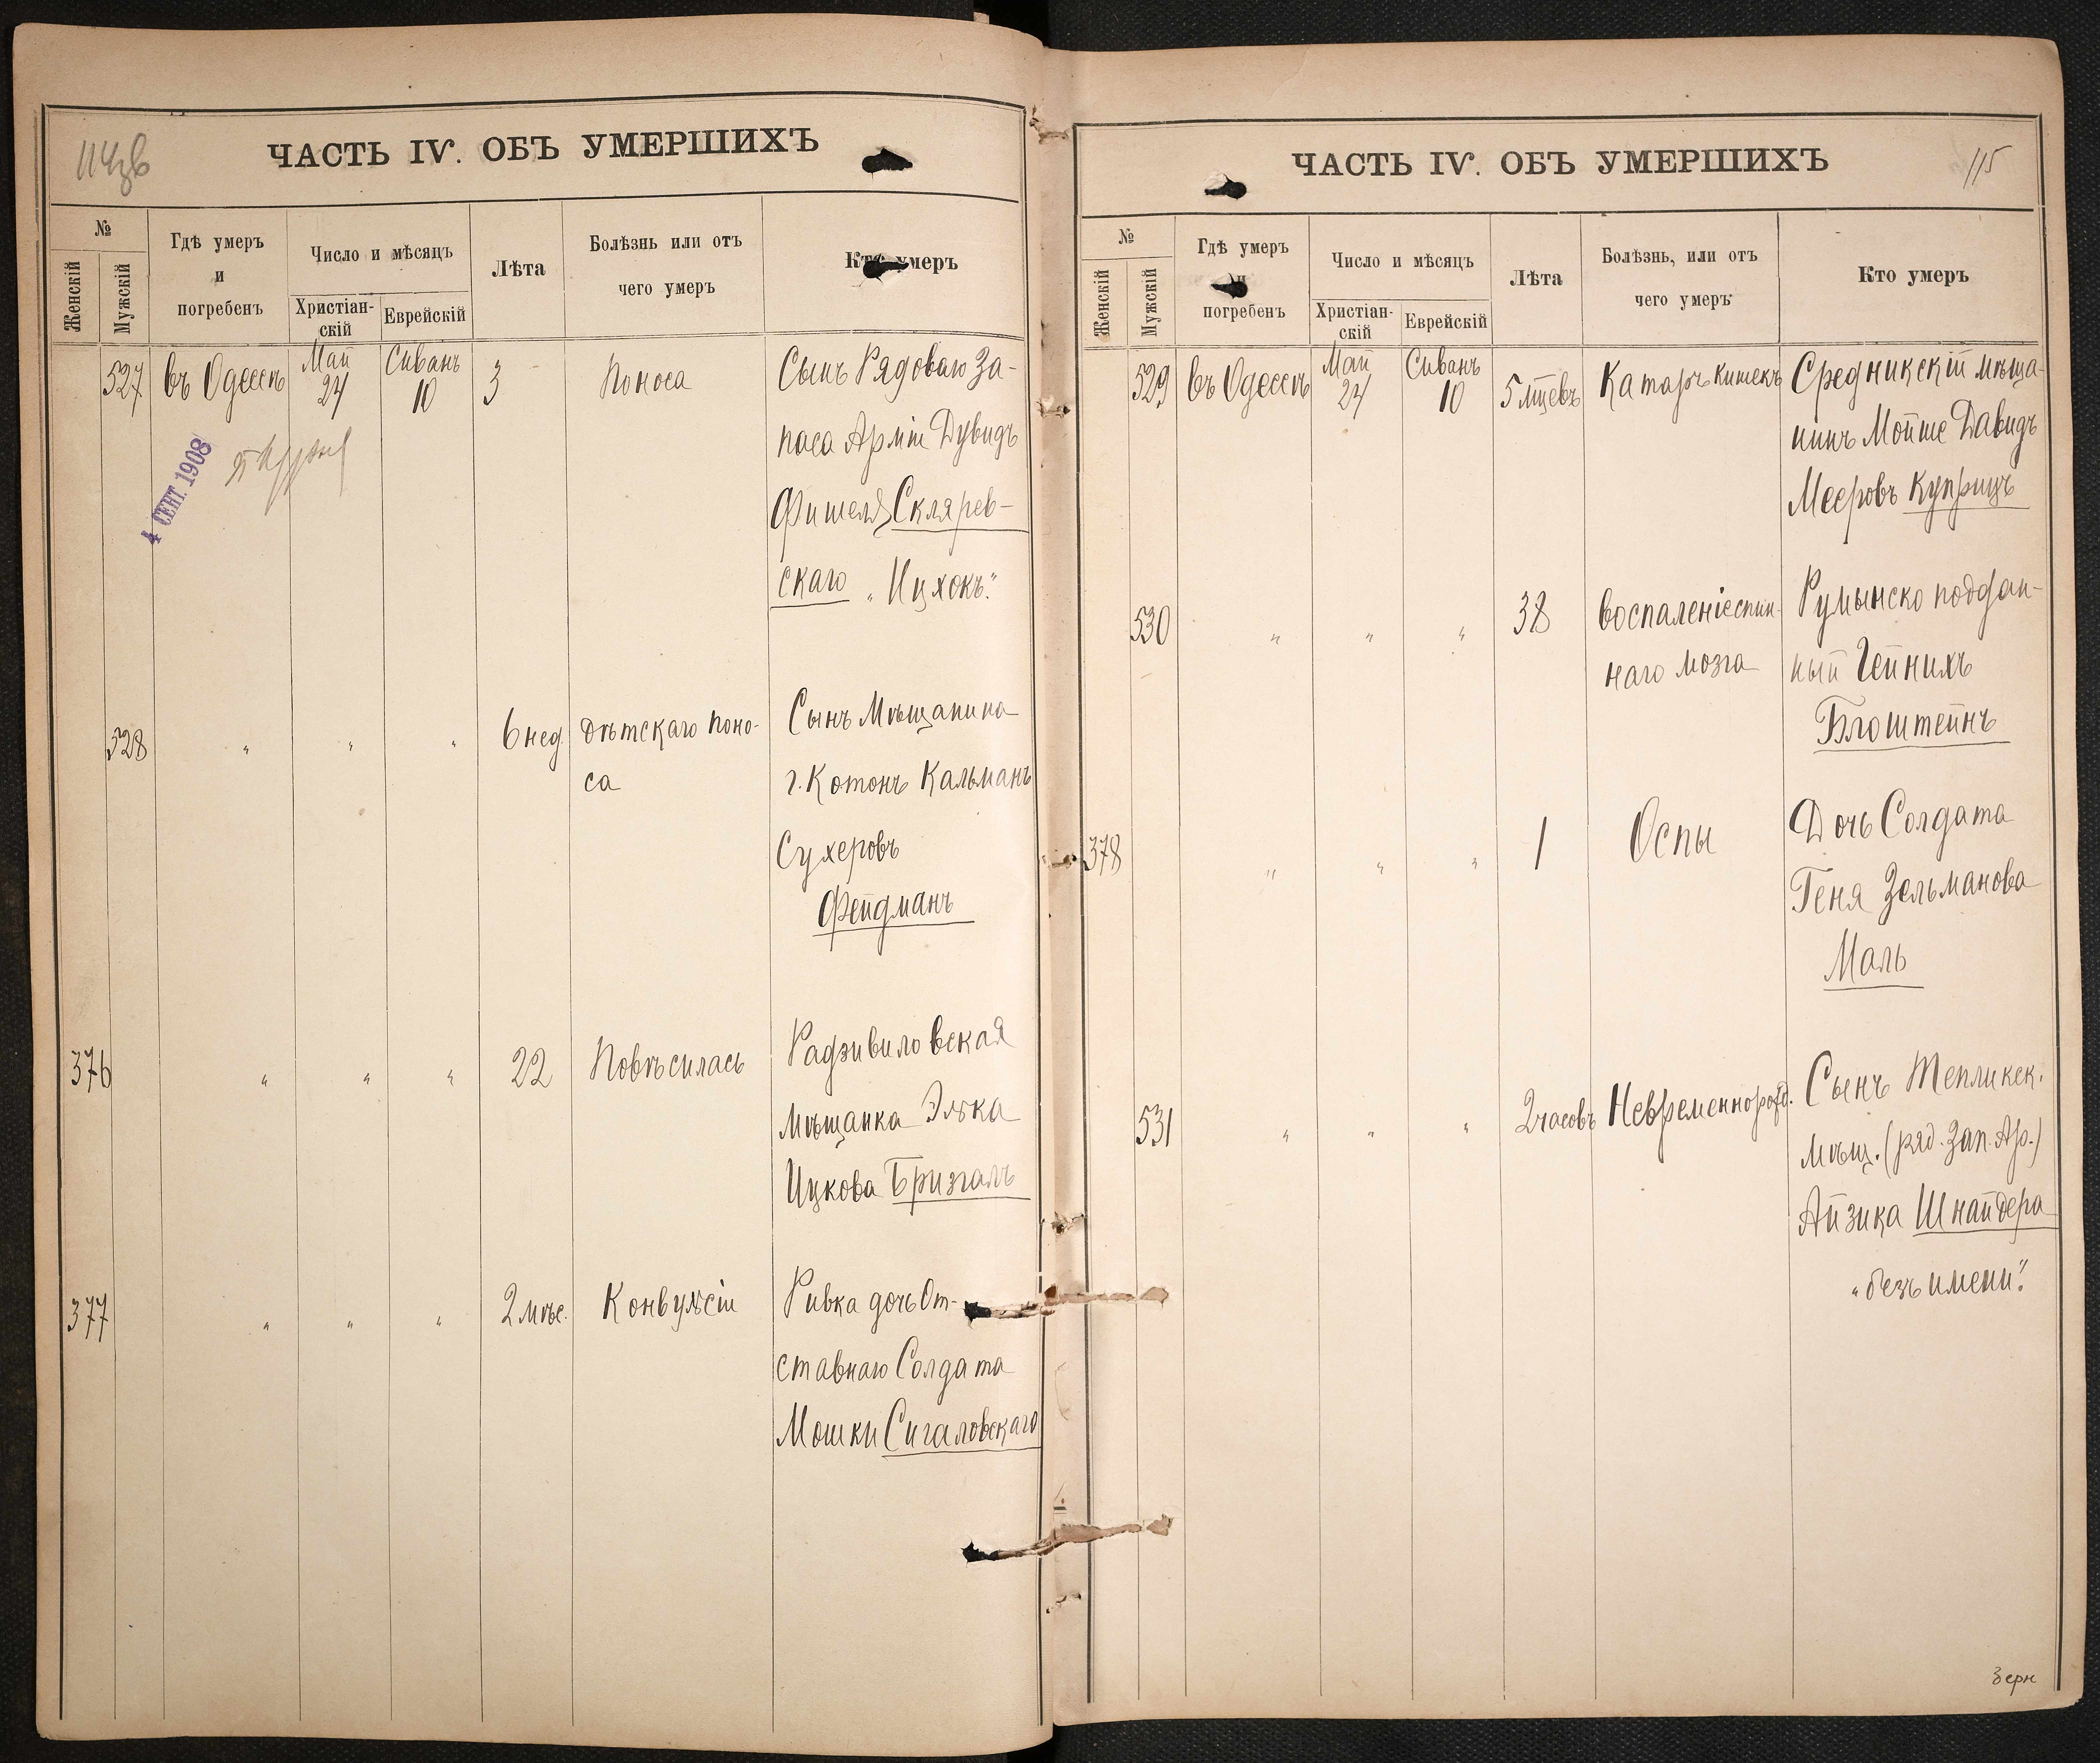 114зв
ЧАСТЬ IV. ОБЪ УМЕРШИХЪ
№
Женскій
Мужскій
Гдѣ умеръ
и
погребенъ
Число и мѣсяцъ
Христіан-
скій
Еврейскій
Лѣта
Болѣзнь или отъ
чего умеръ
Кто умеръ
527 въ Одессѣ Май 24 Сиванъ 10 3 Поноса Сынъ Рядоваго За-
паса Арміи Дувидъ
Фишеля Скляров-
скаго „Ицхокъ“.
4 СЕНТ. 1908
528 „ „ „ 6 нед. Дѣтскаго поно- Сынъ Мѣщанина
са г. Котонъ Кальманъ
Сухеровъ
Фейдманъ
376 „ „ „ 22 Повѣсилась Радзивиловская
мѣщанка Элька
Ицкова Бризгаль
377 „ „ „ 2 мѣс. Конвульсіи Ривка дочь От-
ставнаго Солдата
Мошки Сигаловскаго
ЧАСТЬ IV. ОБЪ УМЕРШИХЪ
115
№
Женскій
Мужскій
Гдѣ умеръ
и
погребенъ
Число и мѣсяцъ
Христіан-
скій
Еврейскій
Лѣта
Болѣзнь, или отъ
чего умеръ
Кто умеръ
529 въ Одессѣ Май 24 Сиванъ 10 5 мцевъ Катаръ кишекъ Средникскій мѣща-
нинъ Мойше Давидъ
Мееровъ Куприцъ
530 „ „ „ 38 воспаленіе спин- Румынско поддан-
наго мозга ный Гейнихъ
Блоштейнъ
378 „ „ „ 1 Оспы Дочь Солдата
Геня Зельманова
Маль
531 „ „ „ 2 часовъ Невременнорожд. Сынъ Тепликск.
мѣщ. (ряд. Зап. Ар.)
Айзика Шнайдера
„безъ имени“.
Зерн